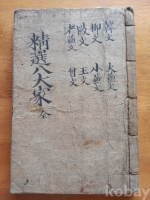 韓文 大蘇文
柳文 小蘇文
歐文 王文
老蘇文 曾文
精選八大家 全
kobay